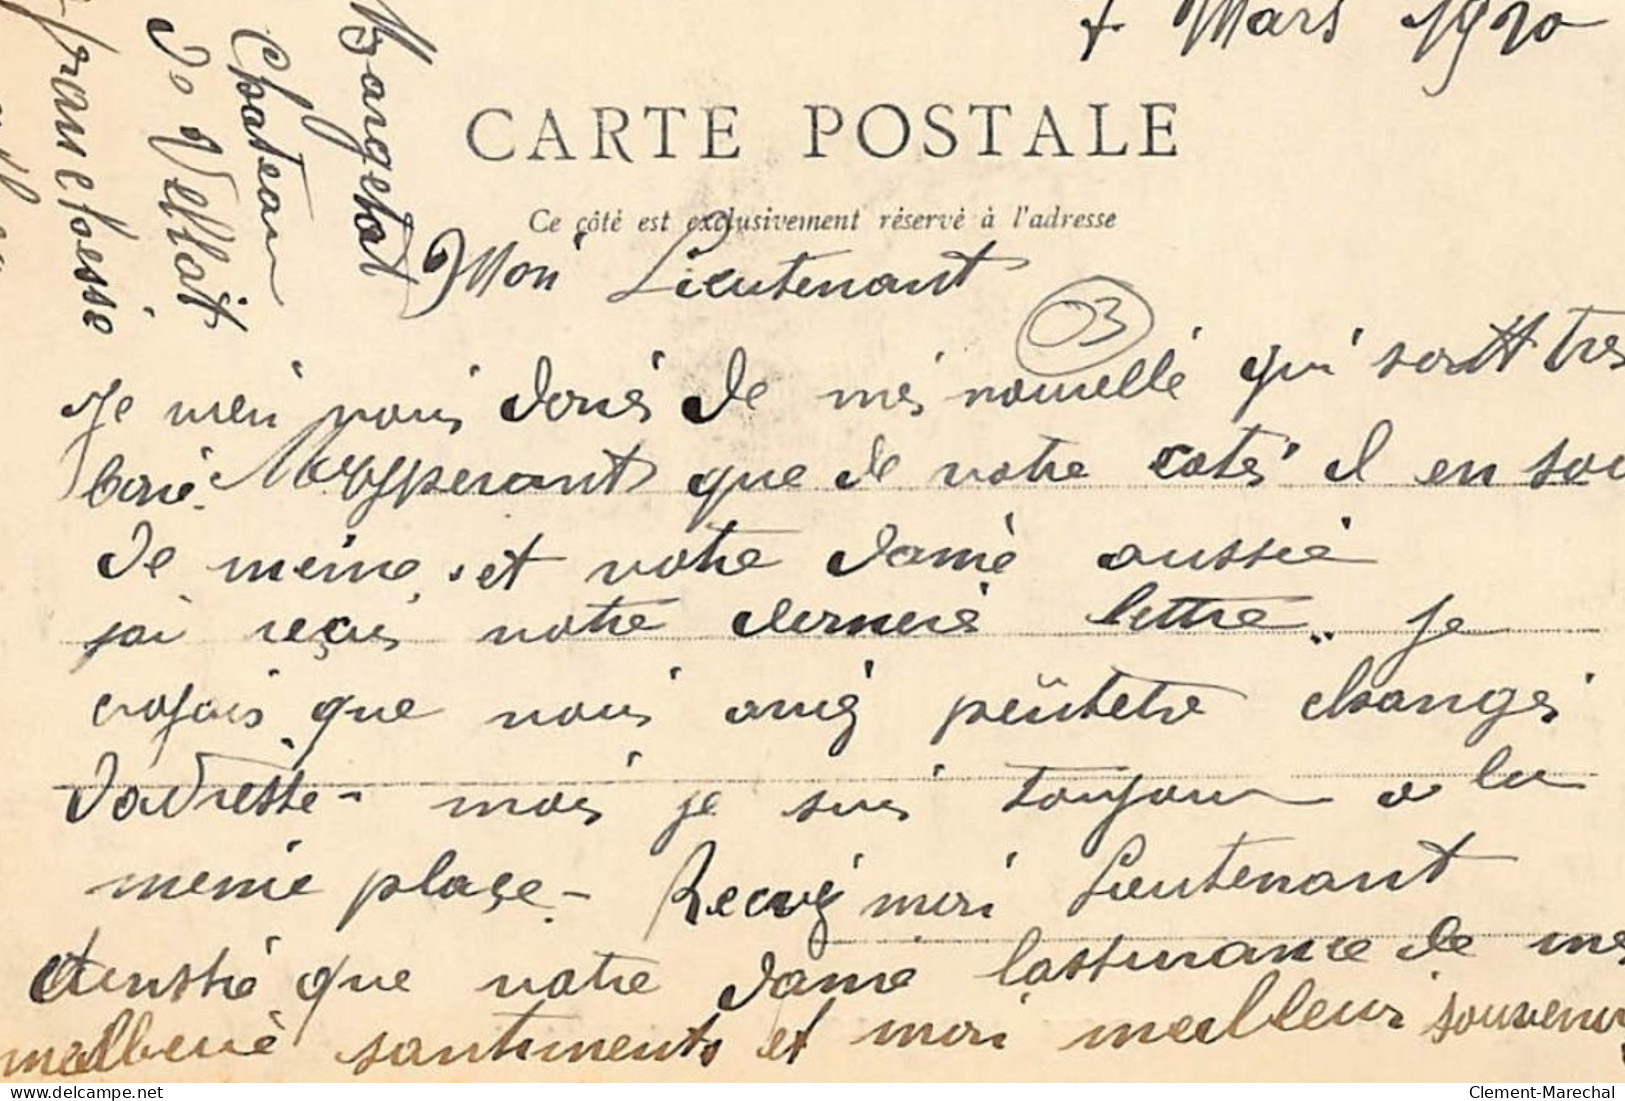 7 Mars 1920
CARTE POSTALE
Ce côté est exclusivement réservé à l'adresse
Mangetat
Chateau
De Vellot
franchesse
Mon Lieutenant
03
Je vien vous donés de mes nouvellé qui sortt tres
boné. que de votre coté il en soi
de meine et votre damé aussié
jai reçus votre derniere lettre.. Je
crojais que vous aviez peutetre changés
dadresse - mais je suis toujour a la
meme place. - Recevez mon Lieutenant
que votre dame lassurance de mes
sentiments et mon meilleur souvenir
delcampe.net
Clement-Marechal